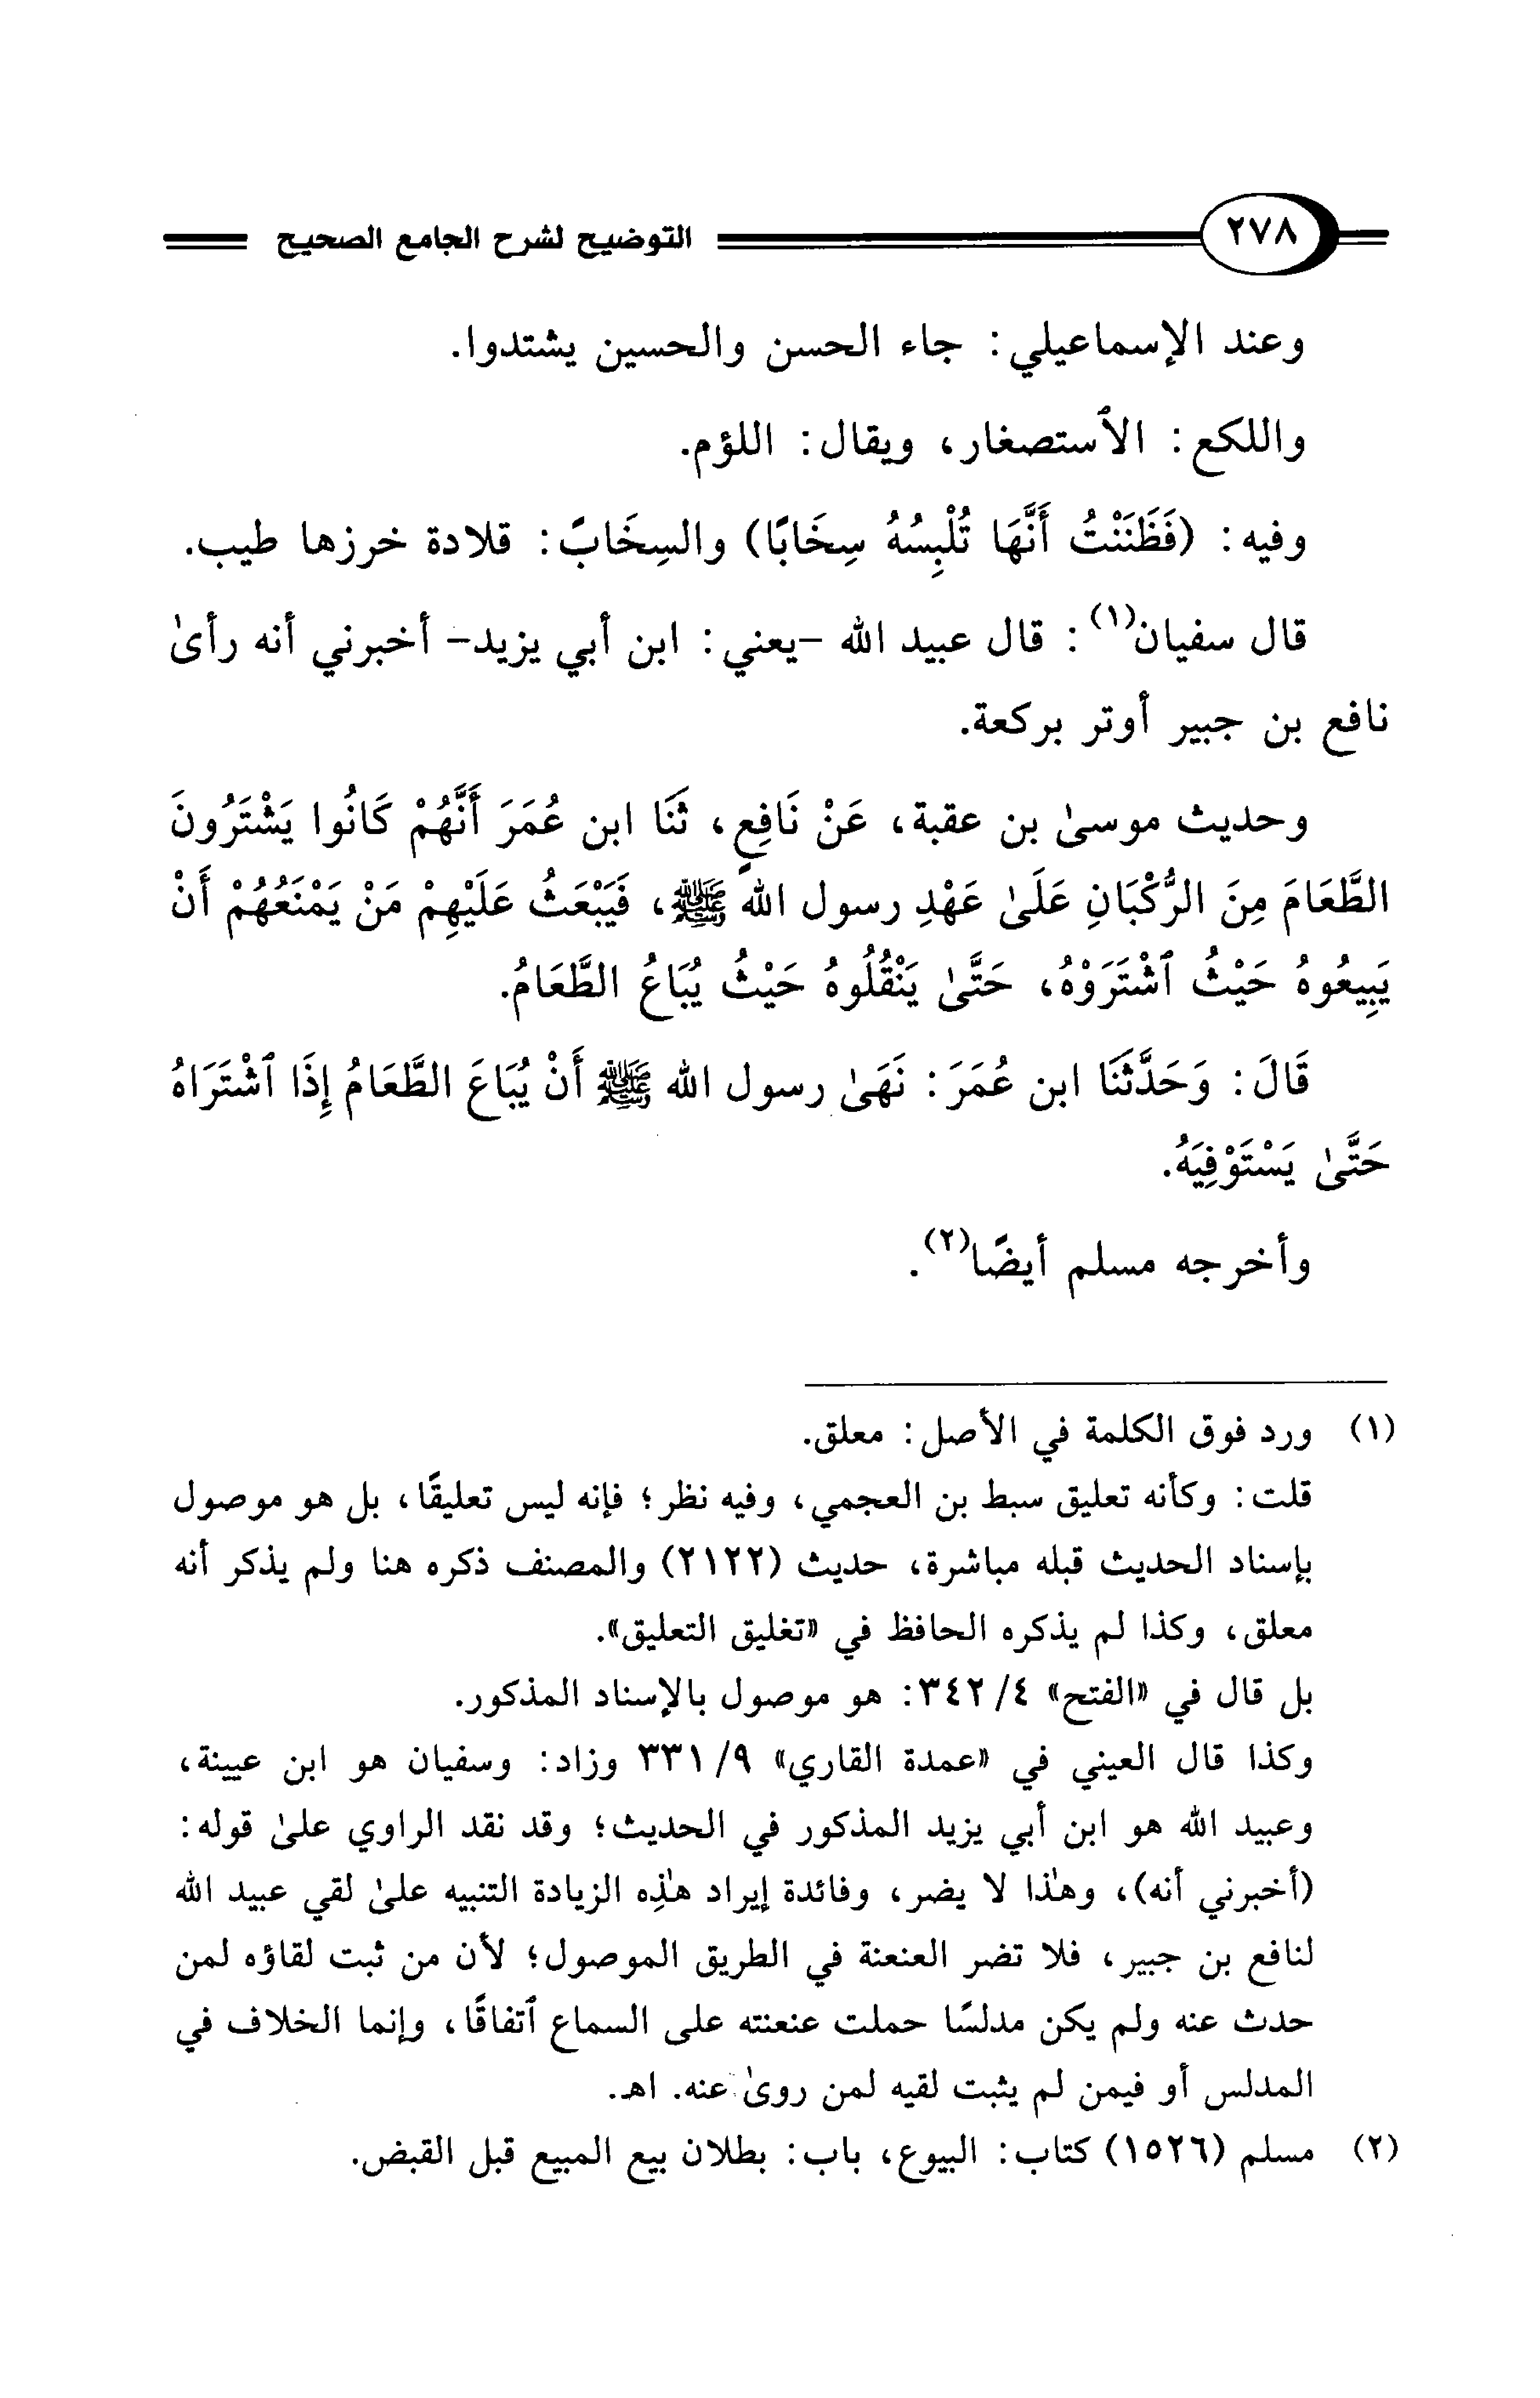 ٢٧٨ التوضيح لشرح الجامع الصحيح
وعند الإسماعيلي: جاء الحسن والحسين يشتدوا.
واللكع: الٱستصغار، ويقال: اللؤم.
وفيه: (فَظَنَنْتُ أَنَّهَا تُلْبِسُهُ سِخَابًا) والسِخَابً: قلادة خرزها طيب.
قال سفيان(١): قال عبيد الله -يعني: ابن أبي يزيد- أخبرني أنه رأىٰ
نافع بن جبير أوتر بركعة.
وحديث موسىٰ بن عقبة، عَنْ نَافِعٍ، ثَنَا ابن عُمَرَ أَنَّهُمْ كَانُوا يَشْتَرُونَ
الطَّعَامَ مِنَ الرُّكْبَانِ عَلَىٰ عَهْدِ رسول الله ﷺ، فَيَبْعَثُ عَلَيْهِمْ مَنْ يَمْنَعُهُمْ أَنْ
يَبِيعُوهُ حَيْثُ ٱشْتَرَوْهُ، حَتَّىٰ يَنْقُلُوهُ حَيْثُ يُبَاعُ الطَّعَامُ.
قَالَ: وَحَدَّثَنَا ابن عُمَرَ: نَهَىٰ رسول الله ﷺ أَنْ يُبَاعَ الطَّعَامُ إِذَا ٱشْتَرَاهُ
حَتَّىٰ يَسْتَوْفِيَهُ.
وأخرجه مسلم أيضًا(٢).
(١) ورد فوق الكلمة في الأصل: معلق.
قلت: وكأنه تعليق سبط بن العجمي، وفيه نظر؛ فإنه ليس تعليقًا، بل هو موصول
بإسناد الحديث قبله مباشرة، حديث (٢١٢٢) والمصنف ذكره هنا ولم يذكر أنه
معلق، وكذا لم يذكره الحافظ في «تغليق التعليق».
بل قال في «الفتح» ٤/ ٣٤٢: هو موصول بالإسناد المذكور.
وكذا قال العيني في «عمدة القاري» ٩/ ٣٣١ وزاد: وسفيان هو ابن عيينة،
وعبيد الله هو ابن أبي يزيد المذكور في الحديث؛ وقد نقد الراوي علىٰ قوله:
(أخبرني أنه)، وهٰذا لا يضر، وفائدة إيراد هٰذِه الزيادة التنبيه علىٰ لقي عبيد الله
لنافع بن جبير، فلا تضر العنعنة في الطريق الموصول؛ لأن من ثبت لقاؤه لمن
حدث عنه ولم يكن مدلسًا حملت عنعنته على السماع ٱتفاقًا، وإنما الخلاف في
المدلس أو فيمن لم يثبت لقيه لمن روىٰ عنه. اهـ.
(٢) مسلم (١٥٢٦) كتاب: البيوع، باب: بطلان بيع المبيع قبل القبض.